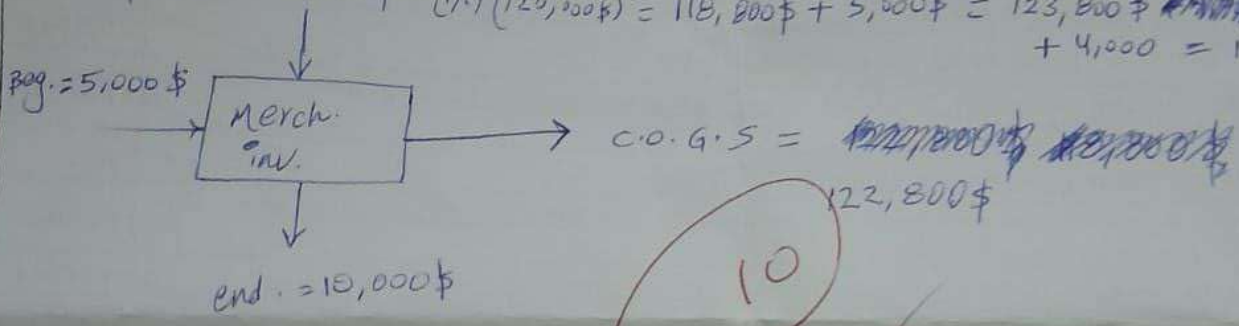 (120,000$) = 118,800$ + 5,000$ = 123,800$
+ 4,000 =
Beg. = 5,000 $
Merch.
inv.
C.O.G.S =
122,800$
end. = 10,000$
10